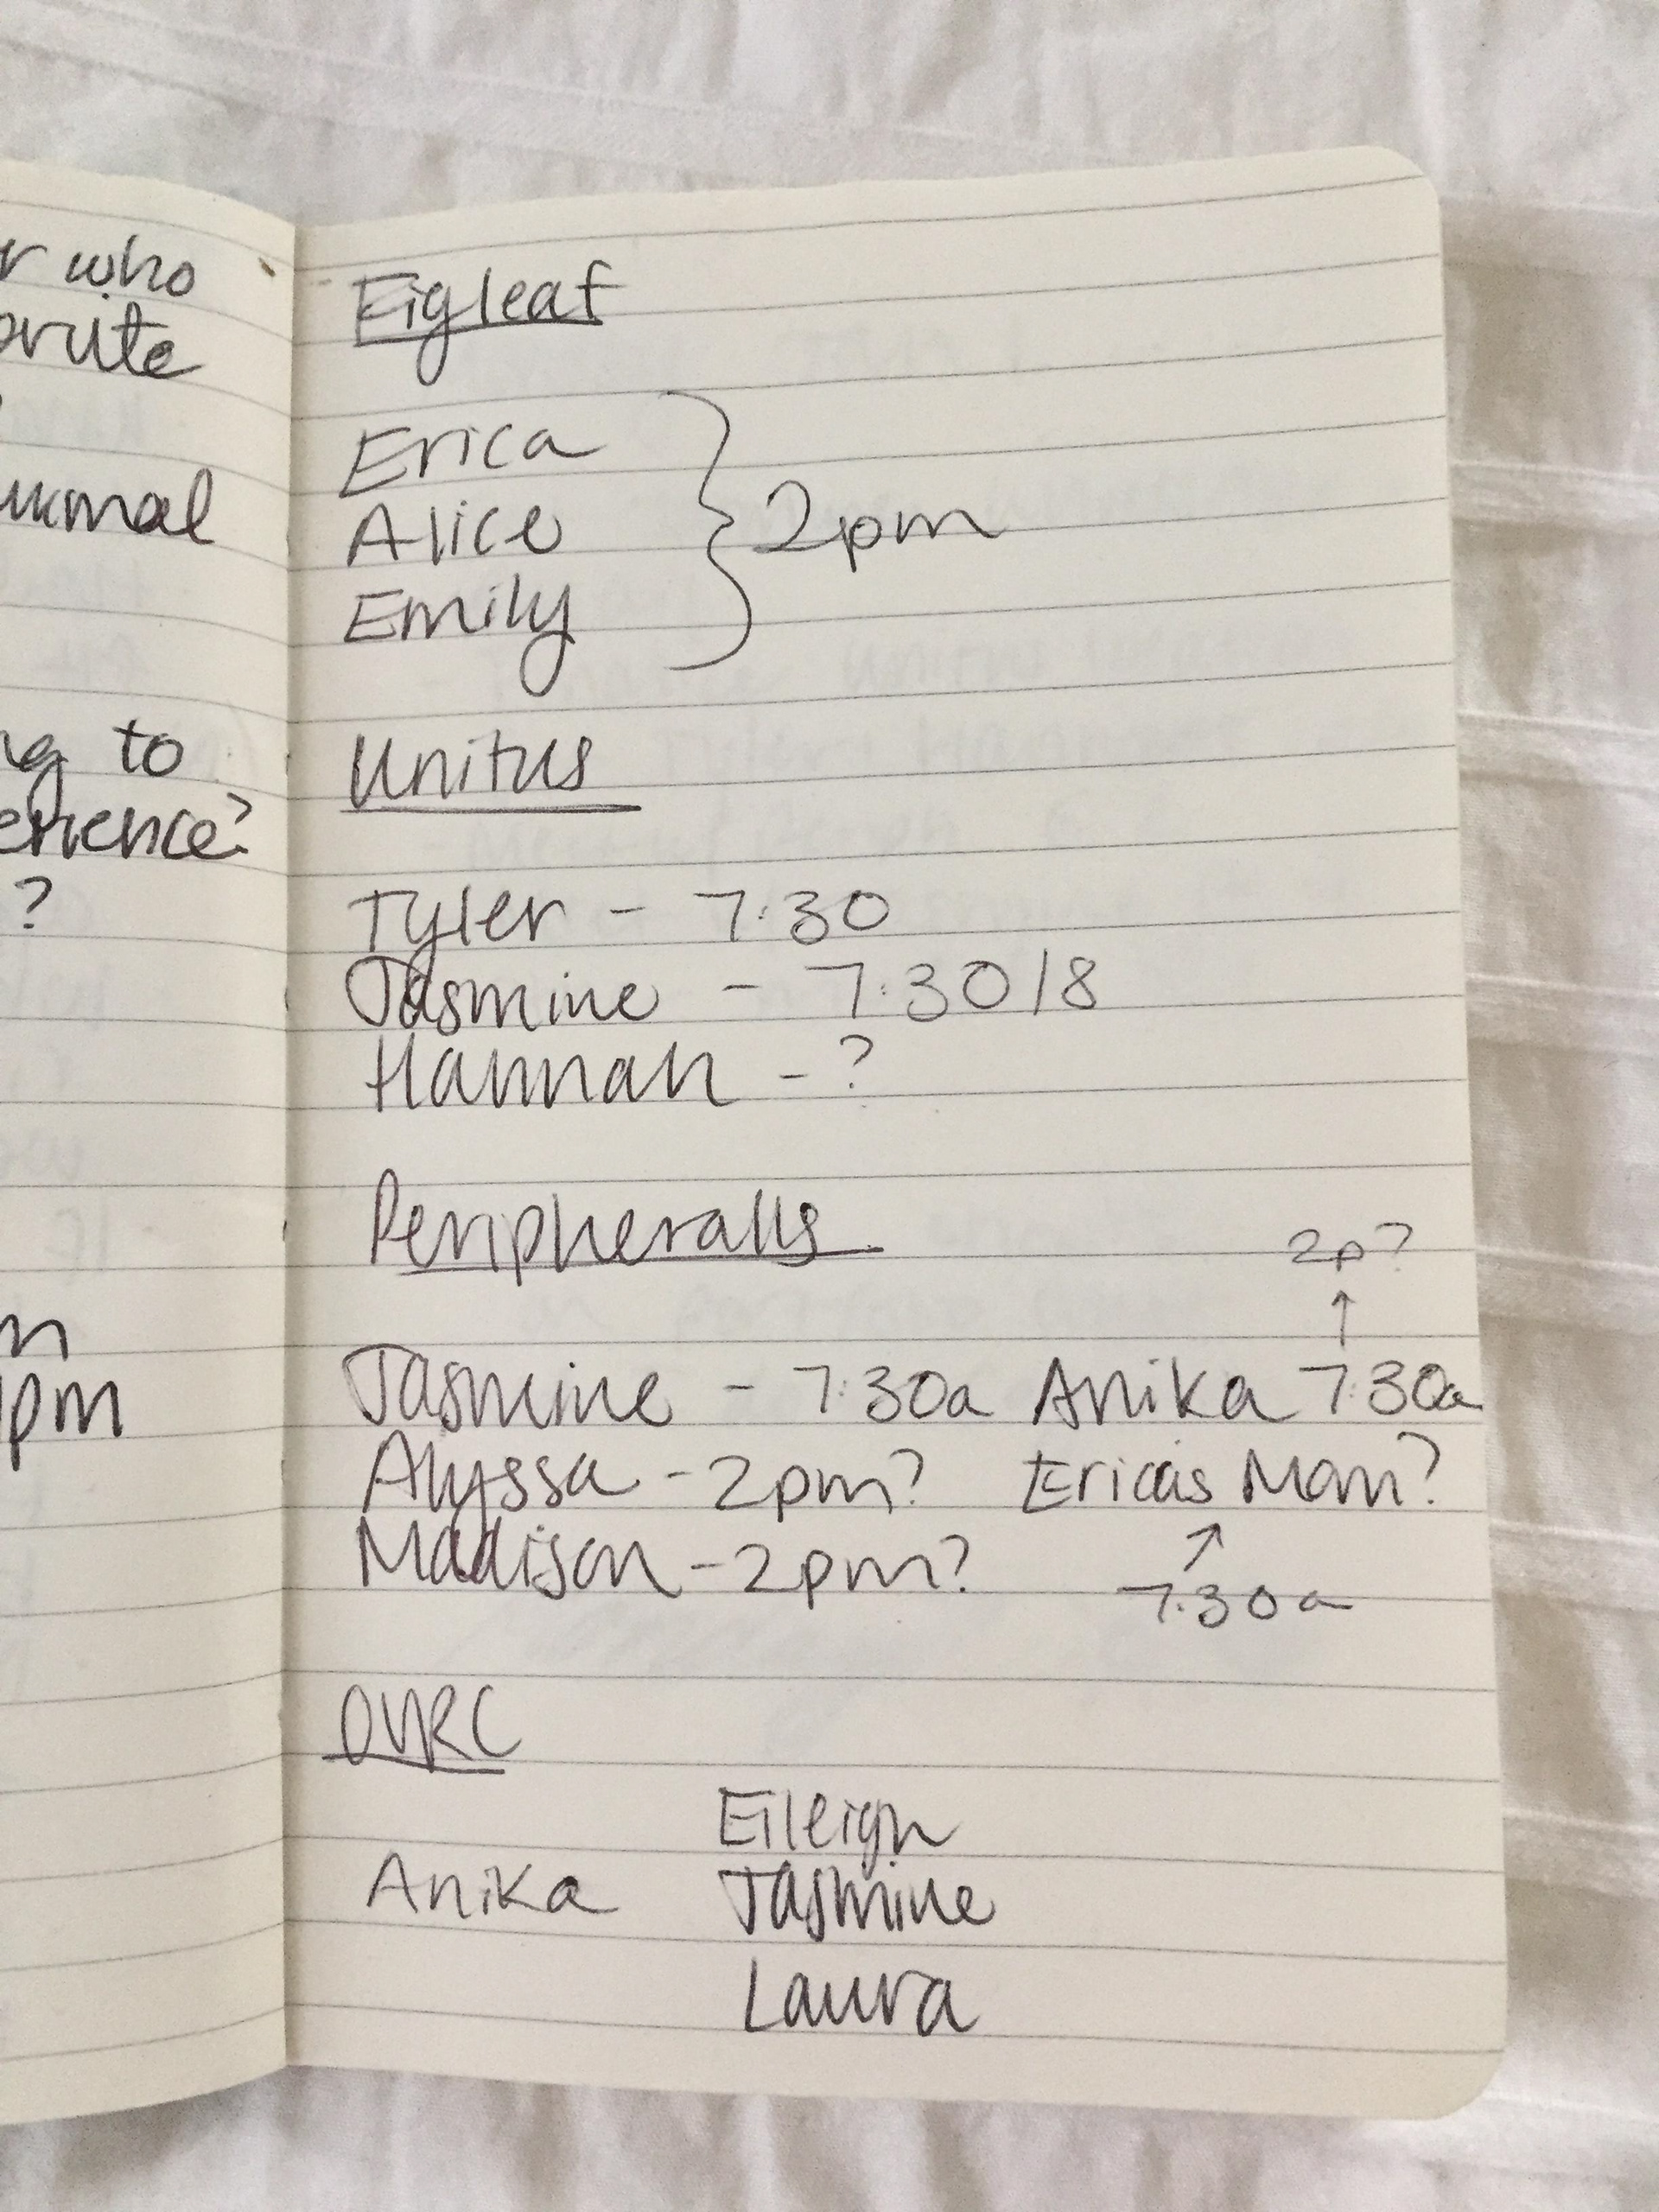 who
to
?
pm
Eigleaf
Erica
Alice
Emily
2pm
Unitus
Tyler - 7:30
Jasmine - 7:30/8
Hannah - ?
Peripheralls
2p?
↑
Jasmine - 7:30a Anika 7:30a
Alyssa - 2pm? Ericas Mom?
Madison - 2pm? ↗
7:30a
OVRC
Eileign
Anika Jasmine
Laura